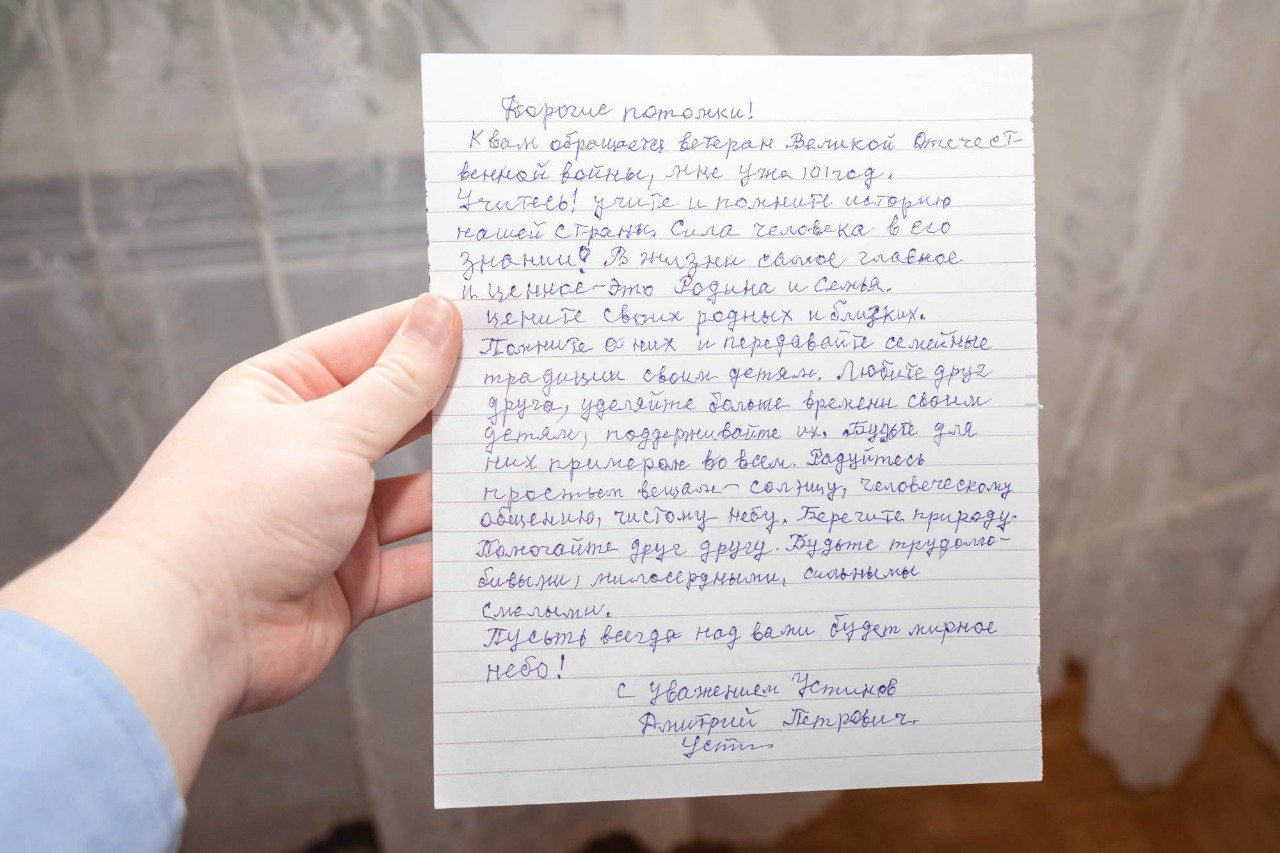 Дорогие потомки!
К вам обращается ветеран Великой Отечест-
венной войны, мне ужа 101 год.
Учитесь! учите и помните историю
нашей страны. Сила человека в его
знании! В жизни самое главное
и ценное - это Родина и Семья.
цените своих родных и близких.
Помните о них и передавайте семейные
традиции своим детям. Любите друг
друга, уделяйте больше времени своим
детям, поддерживайте их. Будьте для
них примером во всем. Радуйтесь
простым вещам - солнцу, человеческому
общению, чистому небу. Берегите природу.
Помогайте друг другу. Будьте трудолю-
бивыми, милосердными, сильными
смелыми.
Пусть всегда над вами будет мирное
небо!
С уважением Устинов
Дмитрий Петрович.